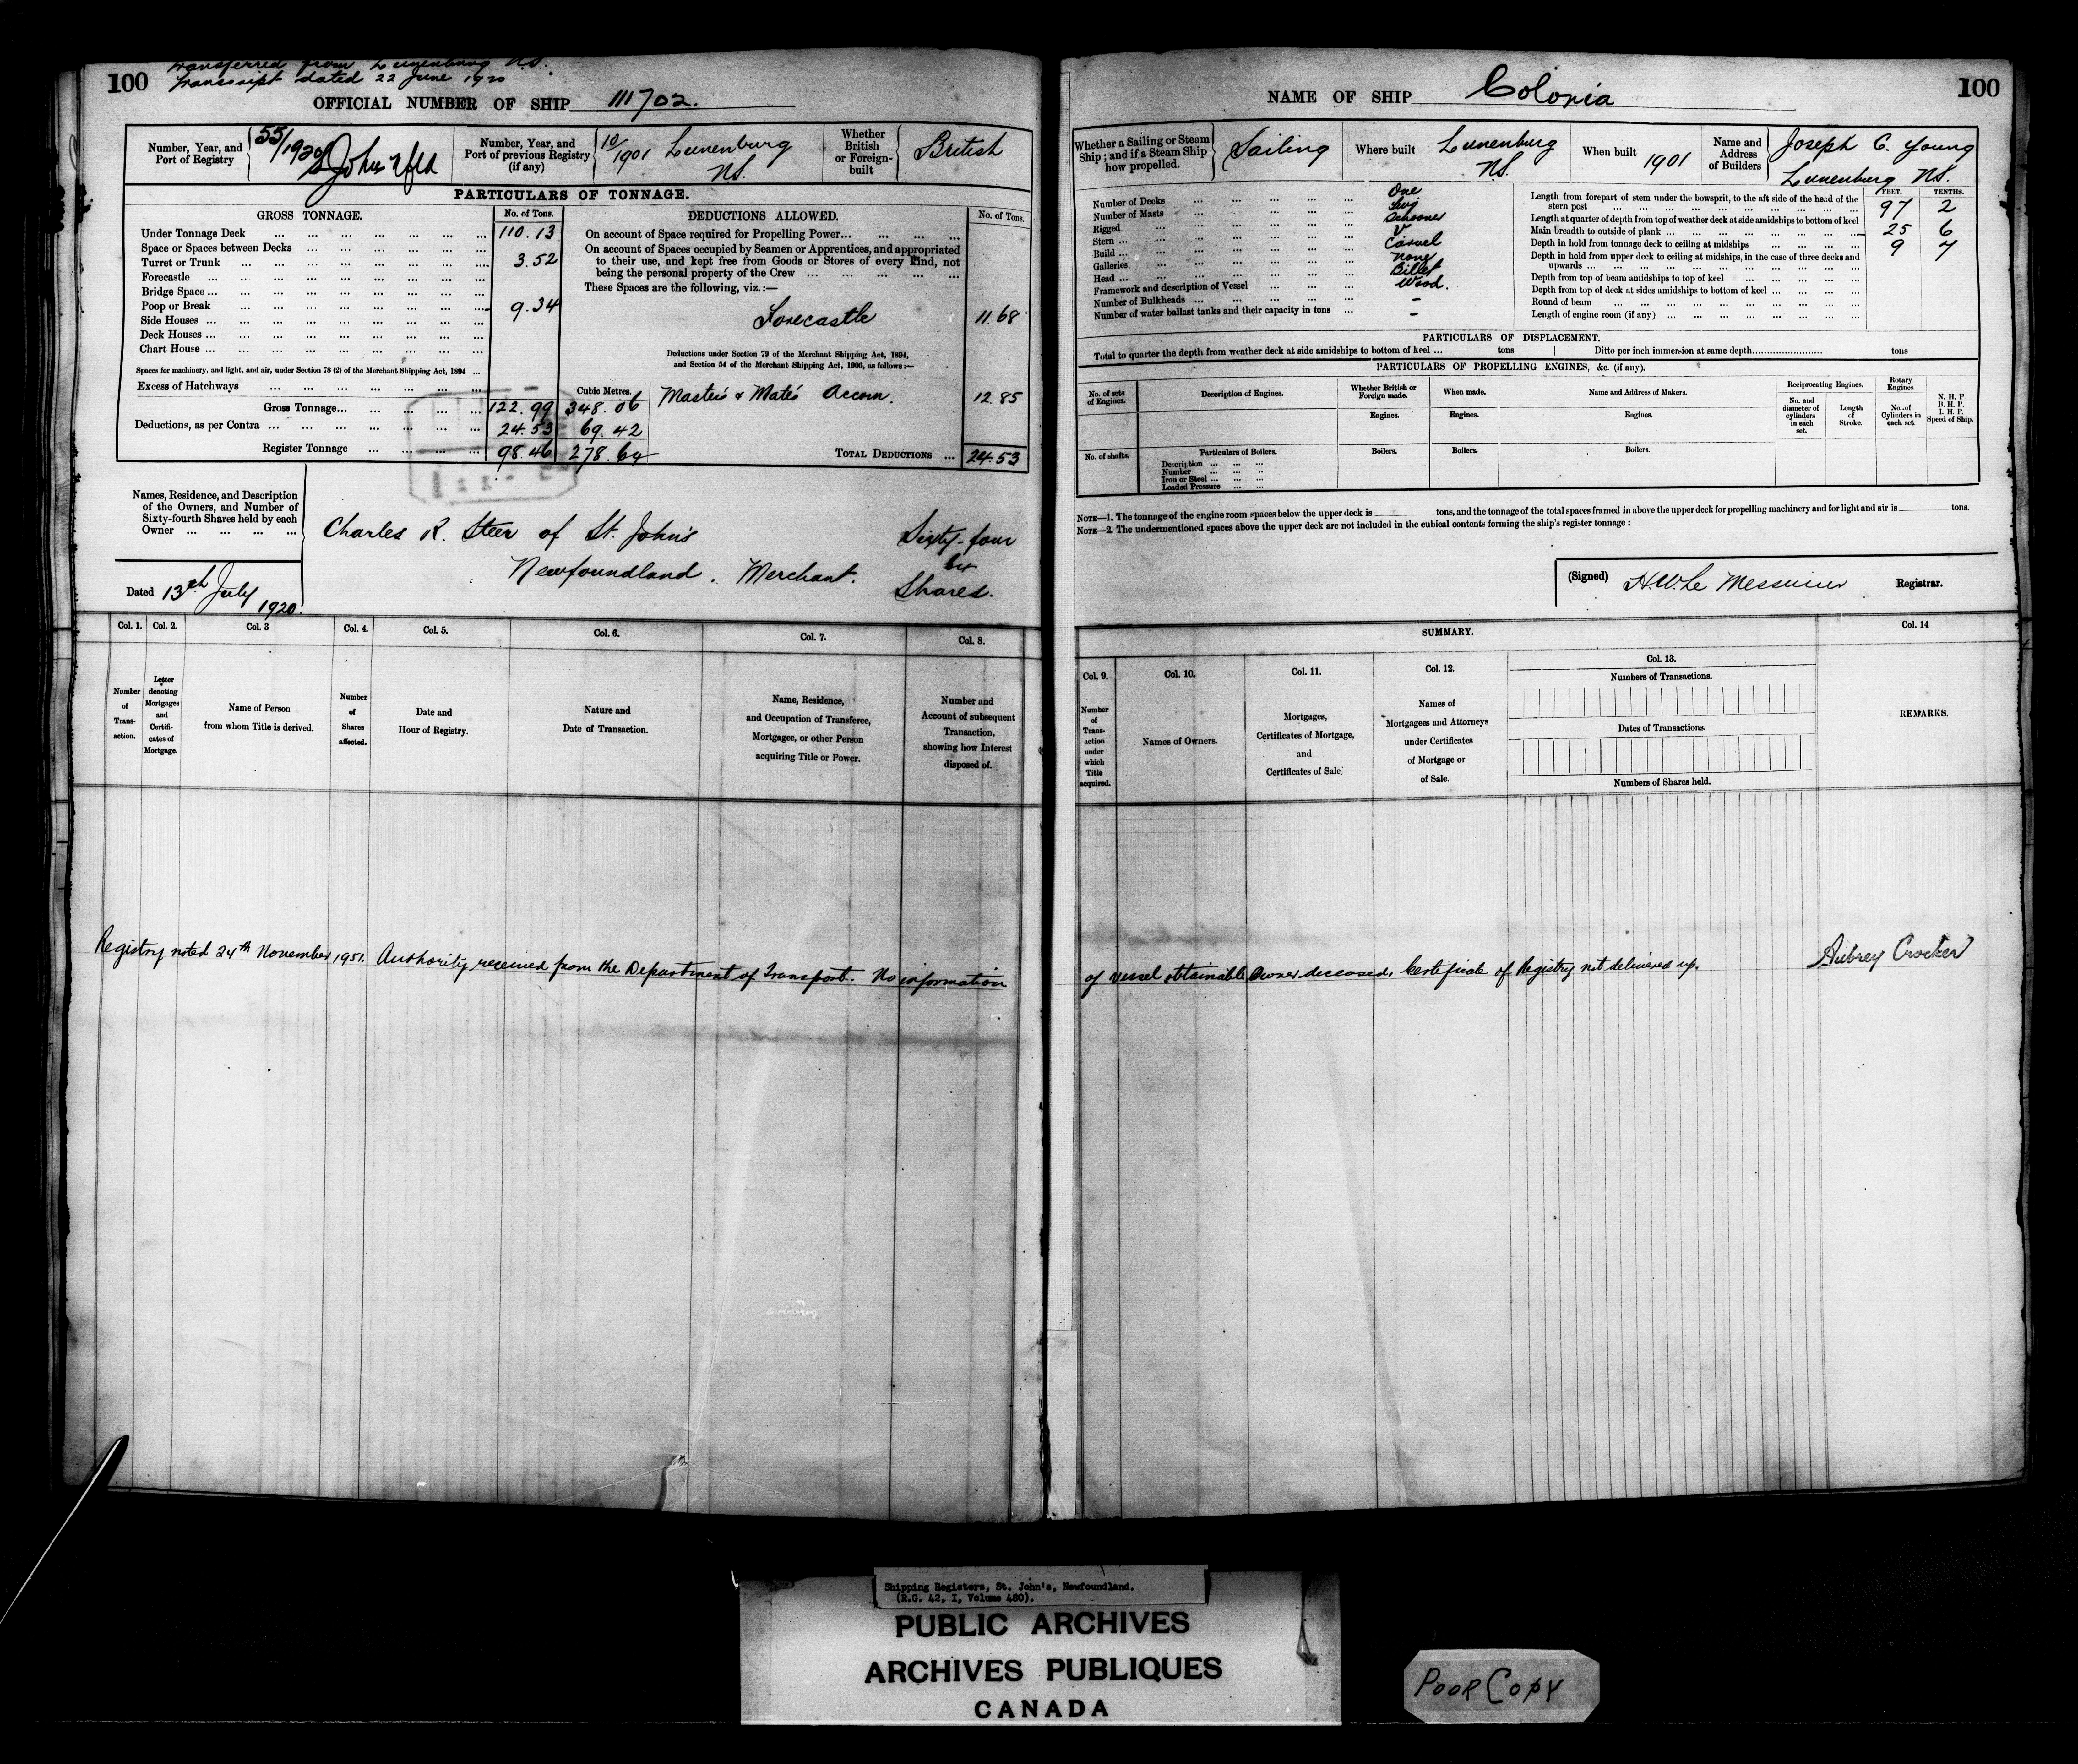 100
Transferred from Lunenburg N.S.
Transcript dated 22 June 1920
OFFICIAL NUMBER OF SHIP 111702.
Number, Year, and Port of Registry 55/1920 St Johns Nfld
Number, Year, and Port of previous Registry (if any) 10/1901 Lunenburg N.S.
Whether British or Foreign-built British
PARTICULARS OF TONNAGE.
GROSS TONNAGE. No. of Tons.
Under Tonnage Deck ... 110.13
Space or Spaces between Decks ...
Turret or Trunk ... 3.52
Forecastle ...
Bridge Space ...
Poop or Break ... 9.34
Side Houses ...
Deck Houses ...
Chart House ...
Spaces for machinery, and light, and air, under Section 78 (2) of the Merchant Shipping Act, 1894 ...
Excess of Hatchways ...
Cubic Metres.
Gross Tonnage ... 122.99 348.06
Deductions, as per Contra ... 24.53 69.42
Register Tonnage ... 98.46 278.64
DEDUCTIONS ALLOWED. No. of Tons.
On account of Space required for Propelling Power ...
On account of Spaces occupied by Seamen or Apprentices, and appropriated
to their use, and kept free from Goods or Stores of every kind, not
being the personal property of the Crew ...
These Spaces are the following, viz.:—
Forecastle 11.68
Deductions under Section 79 of the Merchant Shipping Act, 1894,
and Section 54 of the Merchant Shipping Act, 1906, as follows:—
Master's & Mate's Accom. 12.85
TOTAL DEDUCTIONS ... 24.53
Names, Residence, and Description
of the Owners, and Number of
Sixty-fourth Shares held by each
Owner ...
Charles R. Steer of St. John's Sixty-four
64
Newfoundland. Merchant. Shares.
Dated 13th July 1920.
Col. 1. Col. 2. Col. 3 Col. 4. Col. 5. Col. 6. Col. 7. Col. 8.
Number of Transaction.
Letter denoting Mortgages and Certificates of Mortgage.
Name of Person from whom Title is derived.
Number of Shares affected.
Date and Hour of Registry.
Nature and Date of Transaction.
Name, Residence, and Occupation of Transferee, Mortgagee, or other Person acquiring Title or Power.
Number and Account of subsequent Transaction, showing how Interest disposed of.
Registry noted 24th November, 1951. Authority received from the Department of Transport. No information
NAME OF SHIP Colonia
100
Whether a Sailing or Steam Ship; and if a Steam Ship how propelled. Sailing
Where built Lunenburg N.S.
When built 1901
Name and Address of Builders Joseph C. Young Lunenburg N.S.
Number of Decks ... One
Number of Masts ... Two
Rigged ... Schooner
Stern ... V
Build ... Carvel
Galleries ... None
Head ... Billet
Framework and description of Vessel ... Wood.
Number of Bulkheads ... –
Number of water ballast tanks and their capacity in tons ... –
FEET. TENTHS.
Length from forepart of stem under the bowsprit, to the aft side of the head of the
stern post ... 97 2
Length at quarter of depth from top of weather deck at side amidships to bottom of keel
Main breadth to outside of plank ... 25 6
Depth in hold from tonnage deck to ceiling at midships ... 9 7
Depth in hold from upper deck to ceiling at midships, in the case of three decks and
upwards ...
Depth from top of beam amidships to top of keel ...
Depth from top of deck at sides amidships to bottom of keel ...
Round of beam ...
Length of engine room (if any) ...
PARTICULARS OF DISPLACEMENT.
Total to quarter the depth from weather deck at side amidships to bottom of keel ... tons Ditto per inch immersion at same depth ... tons
PARTICULARS OF PROPELLING ENGINES, &c. (if any).
No. of sets of Engines.
Description of Engines.
Whether British or Foreign made.
When made.
Name and Address of Makers.
Reciprocating Engines.
Rotary Engines.
N. H. P. B. H. P. I. H. P. Speed of Ship.
No. and diameter of cylinders in each set.
Length of Stroke.
No. of Cylinders in each set.
Engines. Engines. Engines.
No. of shafts. Particulars of Boilers. Boilers. Boilers. Boilers.
Description ...
Number ...
Iron or Steel ...
Loaded Pressure ...
NOTE—1. The tonnage of the engine room spaces below the upper deck is tons, and the tonnage of the total spaces framed in above the upper deck for propelling machinery and for light and air is tons.
NOTE—2. The undermentioned spaces above the upper deck are not included in the cubical contents forming the ship's register tonnage:
(Signed) H.W. Le Messurier Registrar.
SUMMARY.
Col. 9. Col. 10. Col. 11. Col. 12. Col. 13. Col. 14
Number of Transaction under which Title acquired.
Names of Owners.
Mortgages, Certificates of Mortgage, and Certificates of Sale.
Names of Mortgagees and Attorneys under Certificates of Mortgage or of Sale.
Numbers of Transactions.
Dates of Transactions.
Numbers of Shares held.
REMARKS.
of vessel obtainable, Owner deceased, Certificate of Registry not delivered up. Aubrey Crocker
Shipping Registers, St. John's, Newfoundland.
(R.G. 42, I, Volume 480).
PUBLIC ARCHIVES
ARCHIVES PUBLIQUES
CANADA
POOR COPY